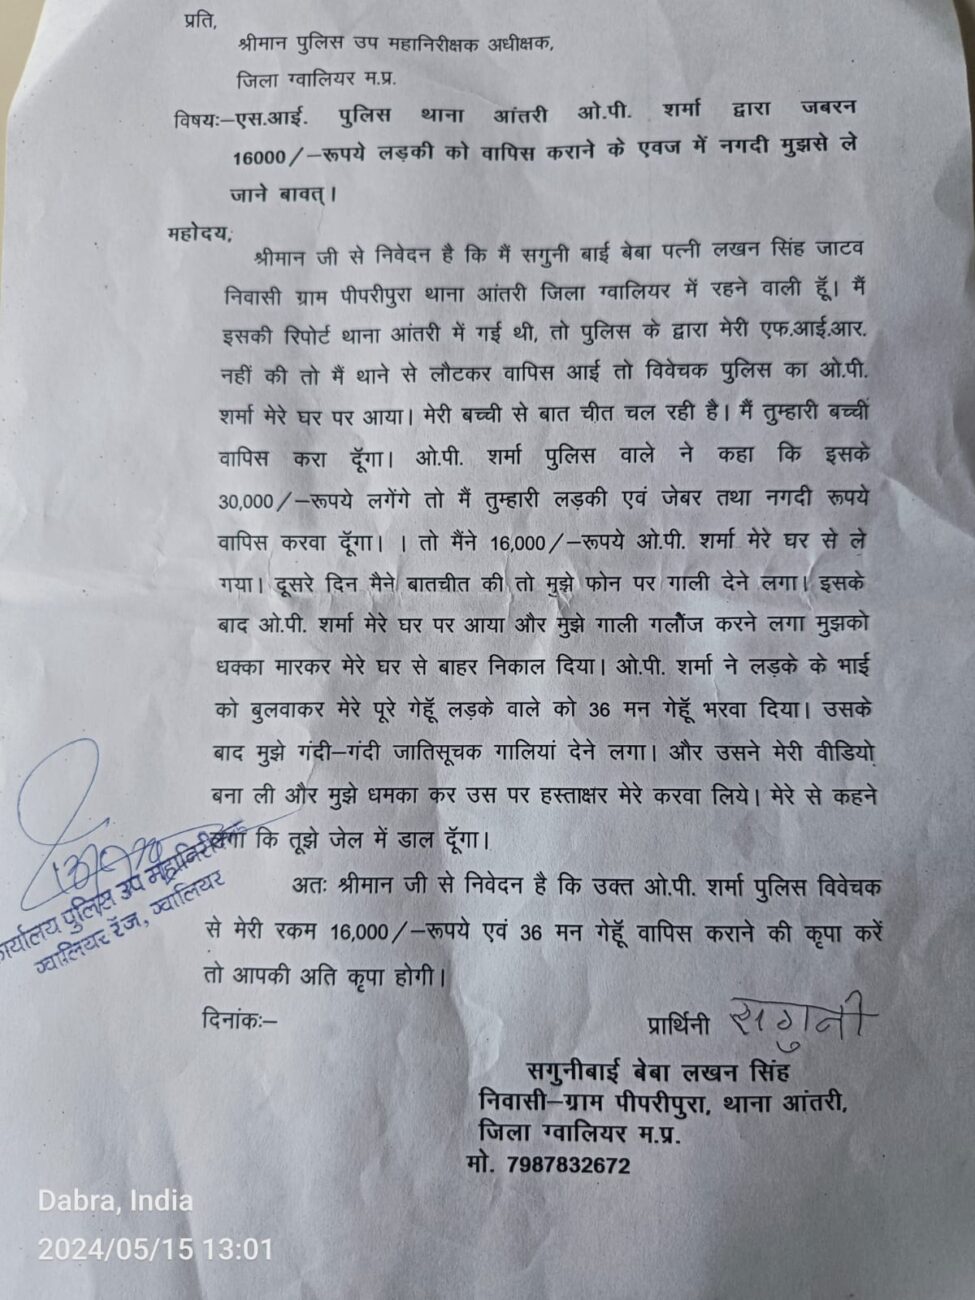 प्रति,
श्रीमान पुलिस उप महानिरीक्षक अधीक्षक,
जिला ग्वालियर म.प्र.
विषयः–एस.आई. पुलिस थाना आंतरी ओ.पी. शर्मा द्वारा जबरन
16000/–रूपये लड़की को वापिस कराने के एवज में नगदी मुझसे ले
जाने बावत्।
महोदय,
श्रीमान जी से निवेदन है कि मैं सगुनी बाई बेबा पत्नी लखन सिंह जाटव
निवासी ग्राम पीपरीपुरा थाना आंतरी जिला ग्वालियर में रहने वाली हूॅ। मैं
इसकी रिपोर्ट थाना आंतरी में गई थी, तो पुलिस के द्वारा मेरी एफ.आई.आर.
नहीं की तो मैं थाने से लौटकर वापिस आई तो विवेचक पुलिस का ओ.पी.
शर्मा मेरे घर पर आया। मेरी बच्ची से बात चीत चल रही है। मैं तुम्हारी बच्ची
वापिस करा दूॅगा। ओ.पी. शर्मा पुलिस वाले ने कहा कि इसके
30,000/–रूपये लगेंगे तो मैं तुम्हारी लड़की एवं जेबर तथा नगदी रूपये
वापिस करवा दूॅगा। । तो मैंने 16,000/–रूपये ओ.पी. शर्मा मेरे घर से ले
गया। दूसरे दिन मैने बातचीत की तो मुझे फोन पर गाली देने लगा। इसके
बाद ओ.पी. शर्मा मेरे घर पर आया और मुझे गाली गलौंज करने लगा मुझको
धक्का मारकर मेरे घर से बाहर निकाल दिया। ओ.पी. शर्मा ने लड़के के भाई
को बुलवाकर मेरे पूरे गेहूॅ लड़के वाले को 36 मन गेहूॅ भरवा दिया। उसके
बाद मुझे गंदी–गंदी जातिसूचक गालियां देने लगा। और उसने मेरी वीडियो
बना ली और मुझे धमका कर उस पर हस्ताक्षर मेरे करवा लिये। मेरे से कहने
लगा कि तूझे जेल में डाल दूॅगा।
अतः श्रीमान जी से निवेदन है कि उक्त ओ.पी. शर्मा पुलिस विवेचक
से मेरी रकम 16,000/–रूपये एवं 36 मन गेहूॅ वापिस कराने की कृपा करें
तो आपकी अति कृपा होगी।
कार्यालय पुलिस उप महानिरीक्षक
ग्वालियर रेंज, ग्वालियर
दिनांकः–
प्रार्थिनी सगुनी
सगुनीबाई बेबा लखन सिंह
निवासी–ग्राम पीपरीपुरा, थाना आंतरी,
जिला ग्वालियर म.प्र.
मो. 7987832672
Dabra, India
2024/05/15 13:01